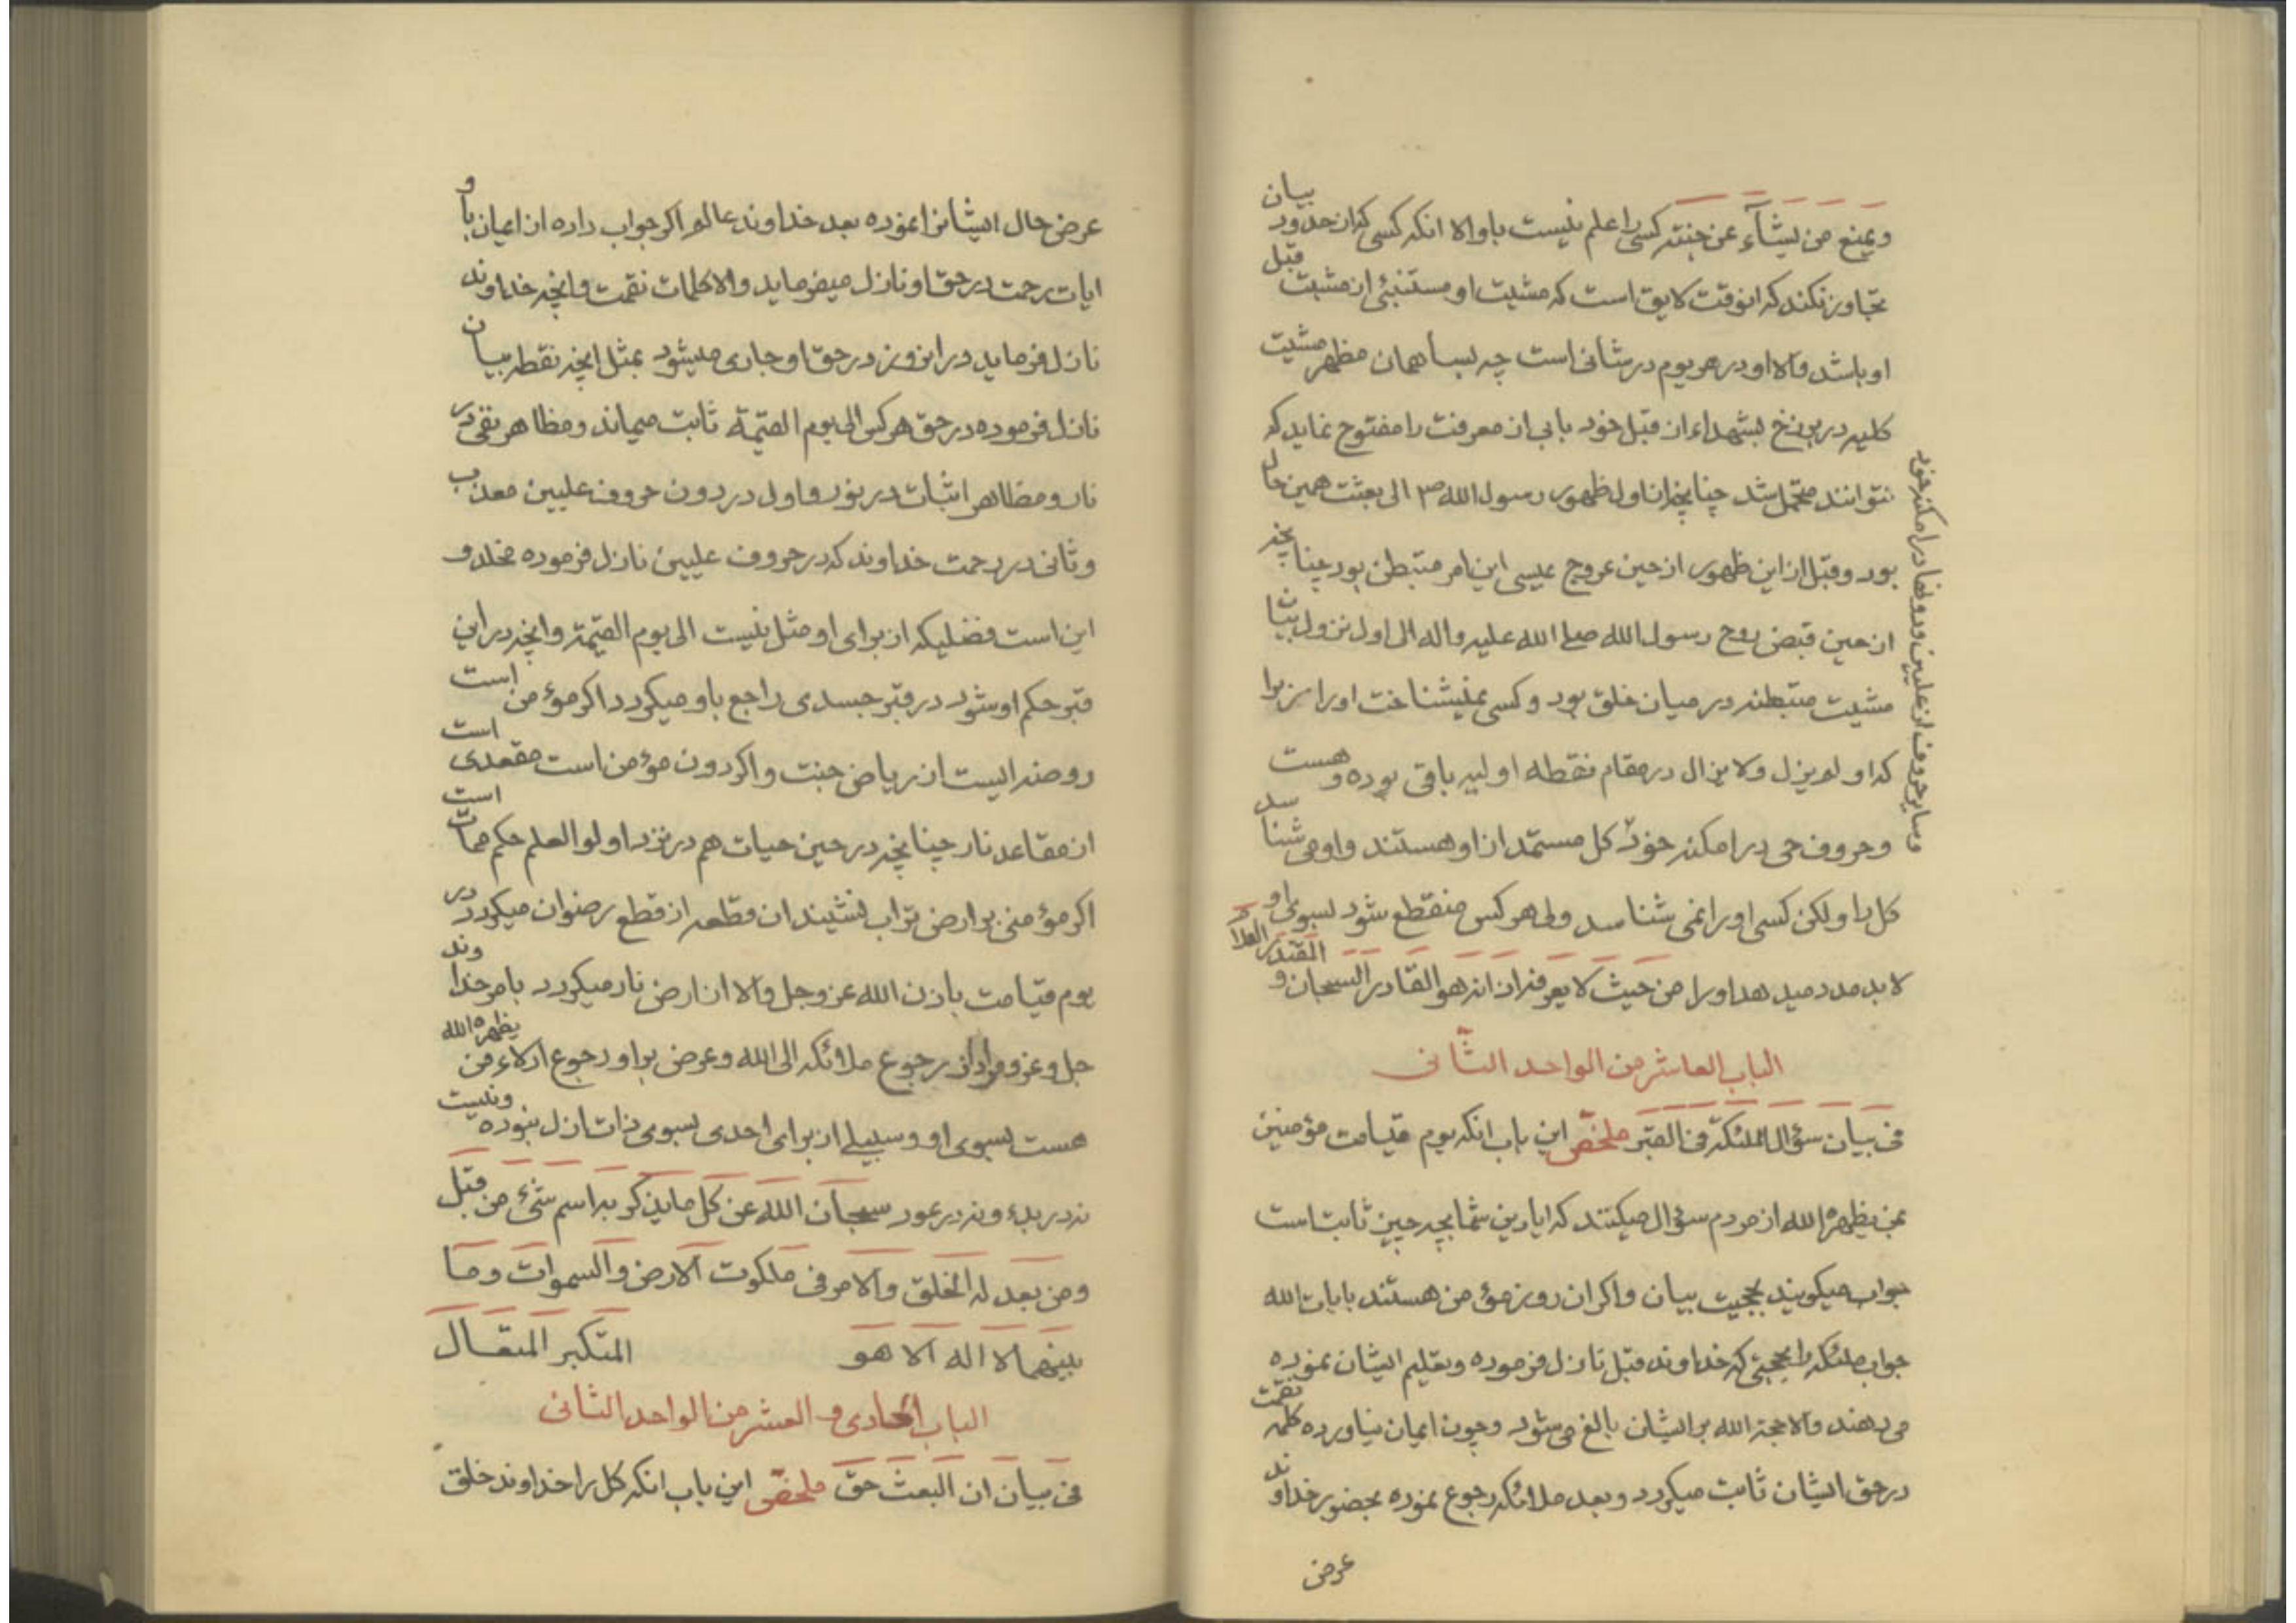 ویمنع من یشآء عن جنته کسی را علم نیست باو الا انکه کسی که از حدود بیان
تجاوز نکند که انوقت لایق است که مشیت او مستنبئی از مشیت قبل
او باشد والا او در هر یوم در شانی است چه بسا همان مظهر مشیت
کلیه در برزخ بشهداء از قبل خود بابی از معرفت را مفتوح نماید که
نتوانند متحمل شد چنانچه از اول ظهور رسول الله ص الی بعثت همین حال
بود وقبل از این ظهور از حین عروج عیسی این امر متبطن بود چنانچه
از حین قبض روح رسول الله صلی الله علیه واله الی اول نزول بیان
مشیت متبطنه در میان خلق بود وکسی نمیشناخت اورا زیرا
که او لم یزل ولا یزال در مقام نقطه اولیه باقی بوده و هست
وحروف حی در امکنه خود کل مستمد از او هستند واو می شناسد
کل را ولکن کسی اورا نمی شناسد ولی هر کس منقطع شود بسوی او
لابد مدد میدهد اورا من حیث لا یعرفه اذ انه هو القادر السبحان و المقتدر العلام
وسایر حروف از علیین ودونها در امکنه خود
الباب العاشر من الواحد الثانی
فی بیان سؤال الملئکة فی القبر ملخص این باب انکه یوم قیامت مؤمنین
بمن یظهره الله از مردم سؤال میکنند که ایا دین شما بچه چیز ثابت است
جواب میکویند بحجیت بیان واکر ان روز مؤمن هستند بایات الله
جواب ملئکه را بحجتی که خداوند قبل نازل فرموده وتعلیم ایشان نموده
می دهند والا حجة الله بر ایشان بالغ می شود وچون ایمان نیاورده کلمه نقمت
در حق ایشان ثابت میکردد وبعد ملائکه رجوع نموده بحضور خداوند
عرض
عرض حال ایشانرا نموده بعد خداوند عالم اکر جواب داده از ایمان باو
ایات رحمت در حق او نازل میفرماید والا کلمات نقمت وانچه خداوند
نازل فرماید در انروز در حق او جاری میشود بمثل انچه نقطه بیان
نازل فرموده در حق هر کس الی یوم القیمة ثابت میماند ومظاهر نفی در
نار ومظاهر اثبات در نور واول در دون حروف علیین معذب
وثانی در رحمت خداوند که در حروف علیین نازل فرموده مخلد و
این است فضلیکه از برای او مثل نیست الی یوم القیمة وانچه در این
قبر حکم او شود در قبر جسدی راجع باو میکردد اکر مؤمن است
روضه ایست از ریاض جنت واکر دون مؤمن است مقعدی است
از مقاعد نار چنانچه در حین حیات هم در نزد اولو العلم حکم همان است
اکر مؤمنی بر ارض تراب نشیند ان قطعه از قطع رضوان میکردد در
یوم قیامت باذن الله عز وجل والا از ارض نار میکردد بامر خداوند
جل وعز ومراد از رجوع ملائکه الی الله وعرض بر او رجوع ادلاء من یظهره الله
هست بسوی او وسبیلی از برای احدی بسوی ذات ازل نبوده ونیست
نه در بدء ونه در عود سبحان الله عن کل ما یذکر به اسم شیء من قبل
ومن بعد له الخلق والامر فی ملکوت الارض والسموات وما
بینهما لا اله الا هو المتکبر المتعال
الباب الحادی و العشر من الواحد الثانی
فی بیان ان البعث حق ملخص این باب انکه کل را خداوند خلق